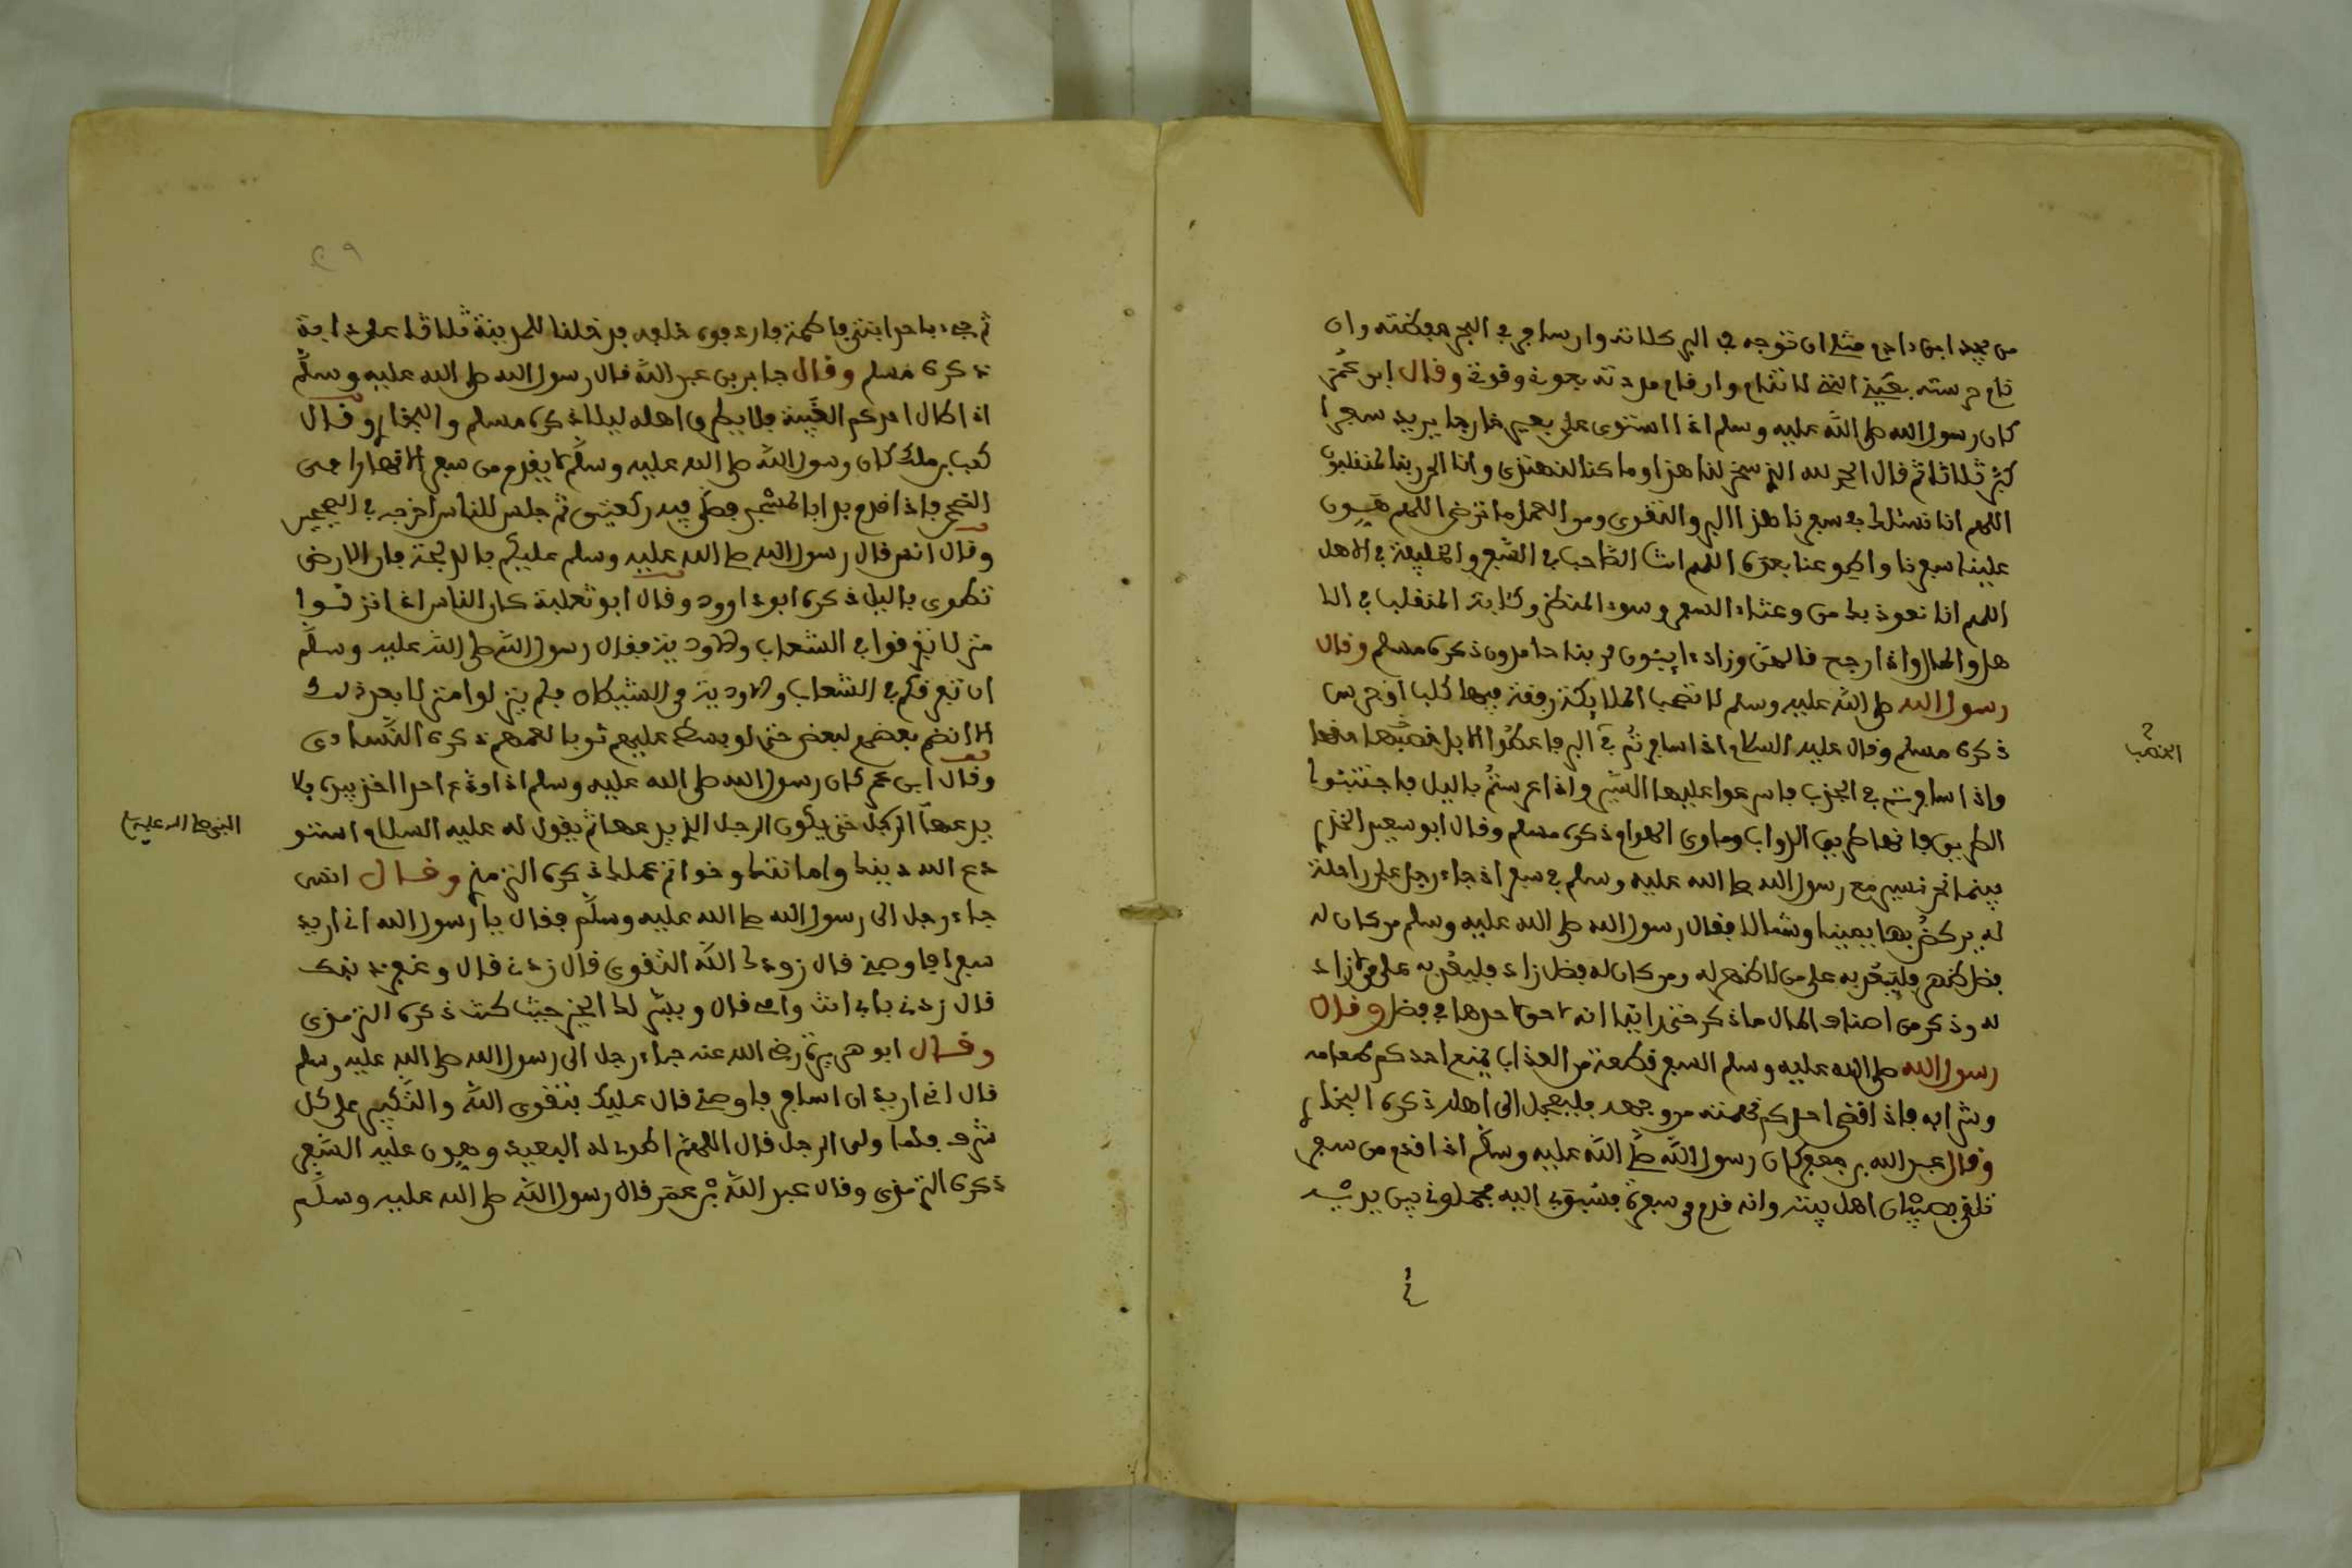 من يجيد ابن دادع مثل ان توجه في البر كلانه وان سافر في البحر حفظته وان
نام حرسته بعين التي لا تنام وان قام مددته بحوله وقوته وقال ابن عمر
كان رسول الله صلى الله عليه وسلم اذا استوى على بعيره خارجا يريد سفرا
كبر ثلاثا ثم قال الحمد لله الذي سخر لنا هذا وما كنا لنهتدي وانا الى ربنا لمنقلبون
اللهم انا نسئلك في سفرنا هذا البر والتقوى ومن العمل ما ترضى اللهم هون
علينا سفرنا واطو عنا بعده اللهم انت الصاحب في السفر والخليفة في الاهل
اللهم انا نعوذ بك من وعثاء السفر وسوء المنظر وكابة المنقلب في الا
هل والمال واذا رجع قالهن وزاد ءايبون لربنا حامدون ذكره مسلم وقال
رسول الله صلى الله عليه وسلم لا تصحب الملايكة رفقة فيها كلب او جرس
ذكره مسلم وقال عليه السلام اذا سافرتم في البر فاعطوا الابل خصبها حقها
واذا سافرتم في الجدب فاسرعوا عليها السير واذا عرستم بالليل فاجتنبوا
الطريق فانها طريق الدواب وماوى الهوام ذكره مسلم وقال ابو سعيد الخدري
بينما نحن نسير مع رسول الله صلى الله عليه وسلم في سفر اذ جاء رجل على راحلة
له يركض بها يمينا وشمالا فقال رسول الله صلى الله عليه وسلم من كان له
فضل ظهر فليعد به على من لا ظهر له ومن كان له فضل زاد فليعد به على من لا زاد
له وذكر من اصناف المال ما ذكر حتى راينا انه لا حق لاحدها في فضل وقال
رسول الله صلى الله عليه وسلم السفر قطعة من العذاب يمنع احدكم طعامه
وشرابه فاذا قضى احدكم نهمته من وجهه فليعجل الى اهله ذكره البخاري
وقال عبد الله بن جعفر كان رسول الله صلى الله عليه وسلم اذا قدم من سفر
تلقى بصبيان اهل بيته وانه قدم من سفره فسبق بي اليه فحملني بين يديه
الخصب
ثم جيء باحد ابني فاطمة فاردفه خلفه فدخلنا المدينة ثلاثا على دابة
ذكره مسلم وقال جابر بن عبد الله قال رسول الله صلى الله عليه وسلم
اذا طال احدكم الغيبة فلا يطرق اهله ليلا ذكره مسلم والبخاري وقال
كعب بن ملك كان رسول الله صلى الله عليه وسلم لا يقدم من سفر الا نهارا حين
الضحى فاذا قدم بدا بالمسجد فصلى فيه ركعتين ثم جلس للناس اخرجه في الصحيح
وقال انس قال رسول الله صلى الله عليه وسلم عليكم بالدلجة فان الارض
تطوى بالليل ذكره ابو داوود وقال ابو ثعلبة كان الناس اذا نزلوا
منزلا تفرقوا في الشعاب والاودية فقال رسول الله صلى الله عليه وسلم
ان تفرقكم في الشعاب والاودية من الشيطان فلم ينزلوا منزلا بعد ذلك
الا انضم بعضهم لبعض حتى لو بسط عليهم ثوبا لعمهم ذكره النساءى
وقال ابن عمر كان رسول الله صلى الله عليه وسلم اذا ودع احدا اخذ بيده فلا
يدعها الرجل حتى يكون الرجل الذي يدعها ثم يقول له عليه السلام استو
دع الله دينك وامانتك وخواتم عملك ذكره الترمذي وقال انس
جاء رجل الى رسول الله صلى الله عليه وسلم فقال يا رسول الله اني اريد
سفرا فاوصني قال زودك الله التقوى قال زدني قال وغفر ذنبك
قال زدني بابي انت وامي قال ويسر لك الخير حيث كنت ذكره الترمذى
وقال ابو هريرة رضي الله عنه جاء رجل الى رسول الله صلى الله عليه وسلم
قال اني اريد ان اسافر فاوصني قال عليك بتقوى الله والتكبير على كل
شرف فلما ولى الرجل قال اللهم اطو له البعيد وهون عليه السفر
ذكره الترمذى وقال عبد الله بن عمر قال رسول الله صلى الله عليه وسلم